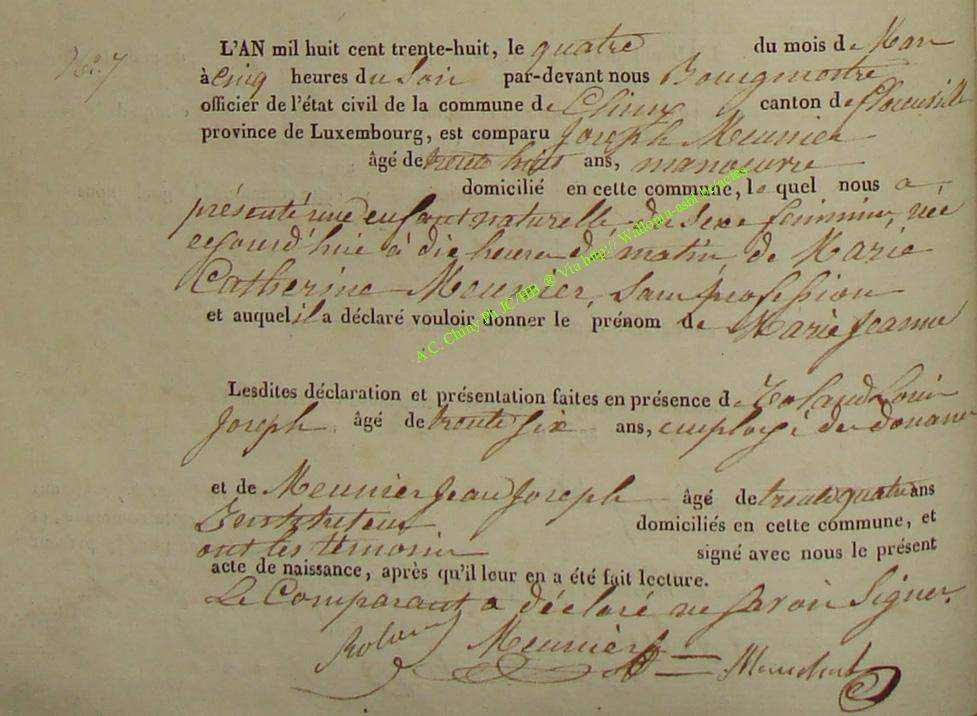 No. 7
L'AN mil huit cent trente-huit, le quatre du mois de Mars
à cinq heures du Soir par-devant nous Bourgmestre
officier de l'état civil de la commune de Chiny canton de Florenville
province de Luxembourg, est comparu Joseph Meunier
âgé de trente huit ans, manoeuvre
domicilié en cette commune, le quel nous a
présenté une enfant naturelle du sexe féminin, née
aujourd'hui à dix heures du matin de Marie
Catherine Meunier, sans profession
et auquel il a déclaré vouloir donner le prénom de Marie Jeanne
Lesdites déclaration et présentation faites en présence de Roland Louis
Joseph âgé de trente six ans, employé des douanes
et de Meunier Jean Joseph âgé de trente quatre ans
Instituteur domiciliés en cette commune, et
ont les témoins signé avec nous le présent
acte de naissance, après qu'il leur en a été fait lecture.
Le Comparant a déclaré ne savoir Signer.
Roland Meunier
A.C. Chiny Ph JC/HB @ Via http:// Wallonia-asbl.be/actes